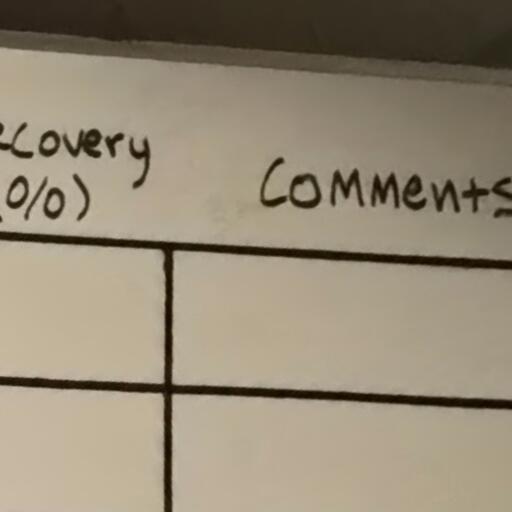 ecovery
(0/0)
Comments